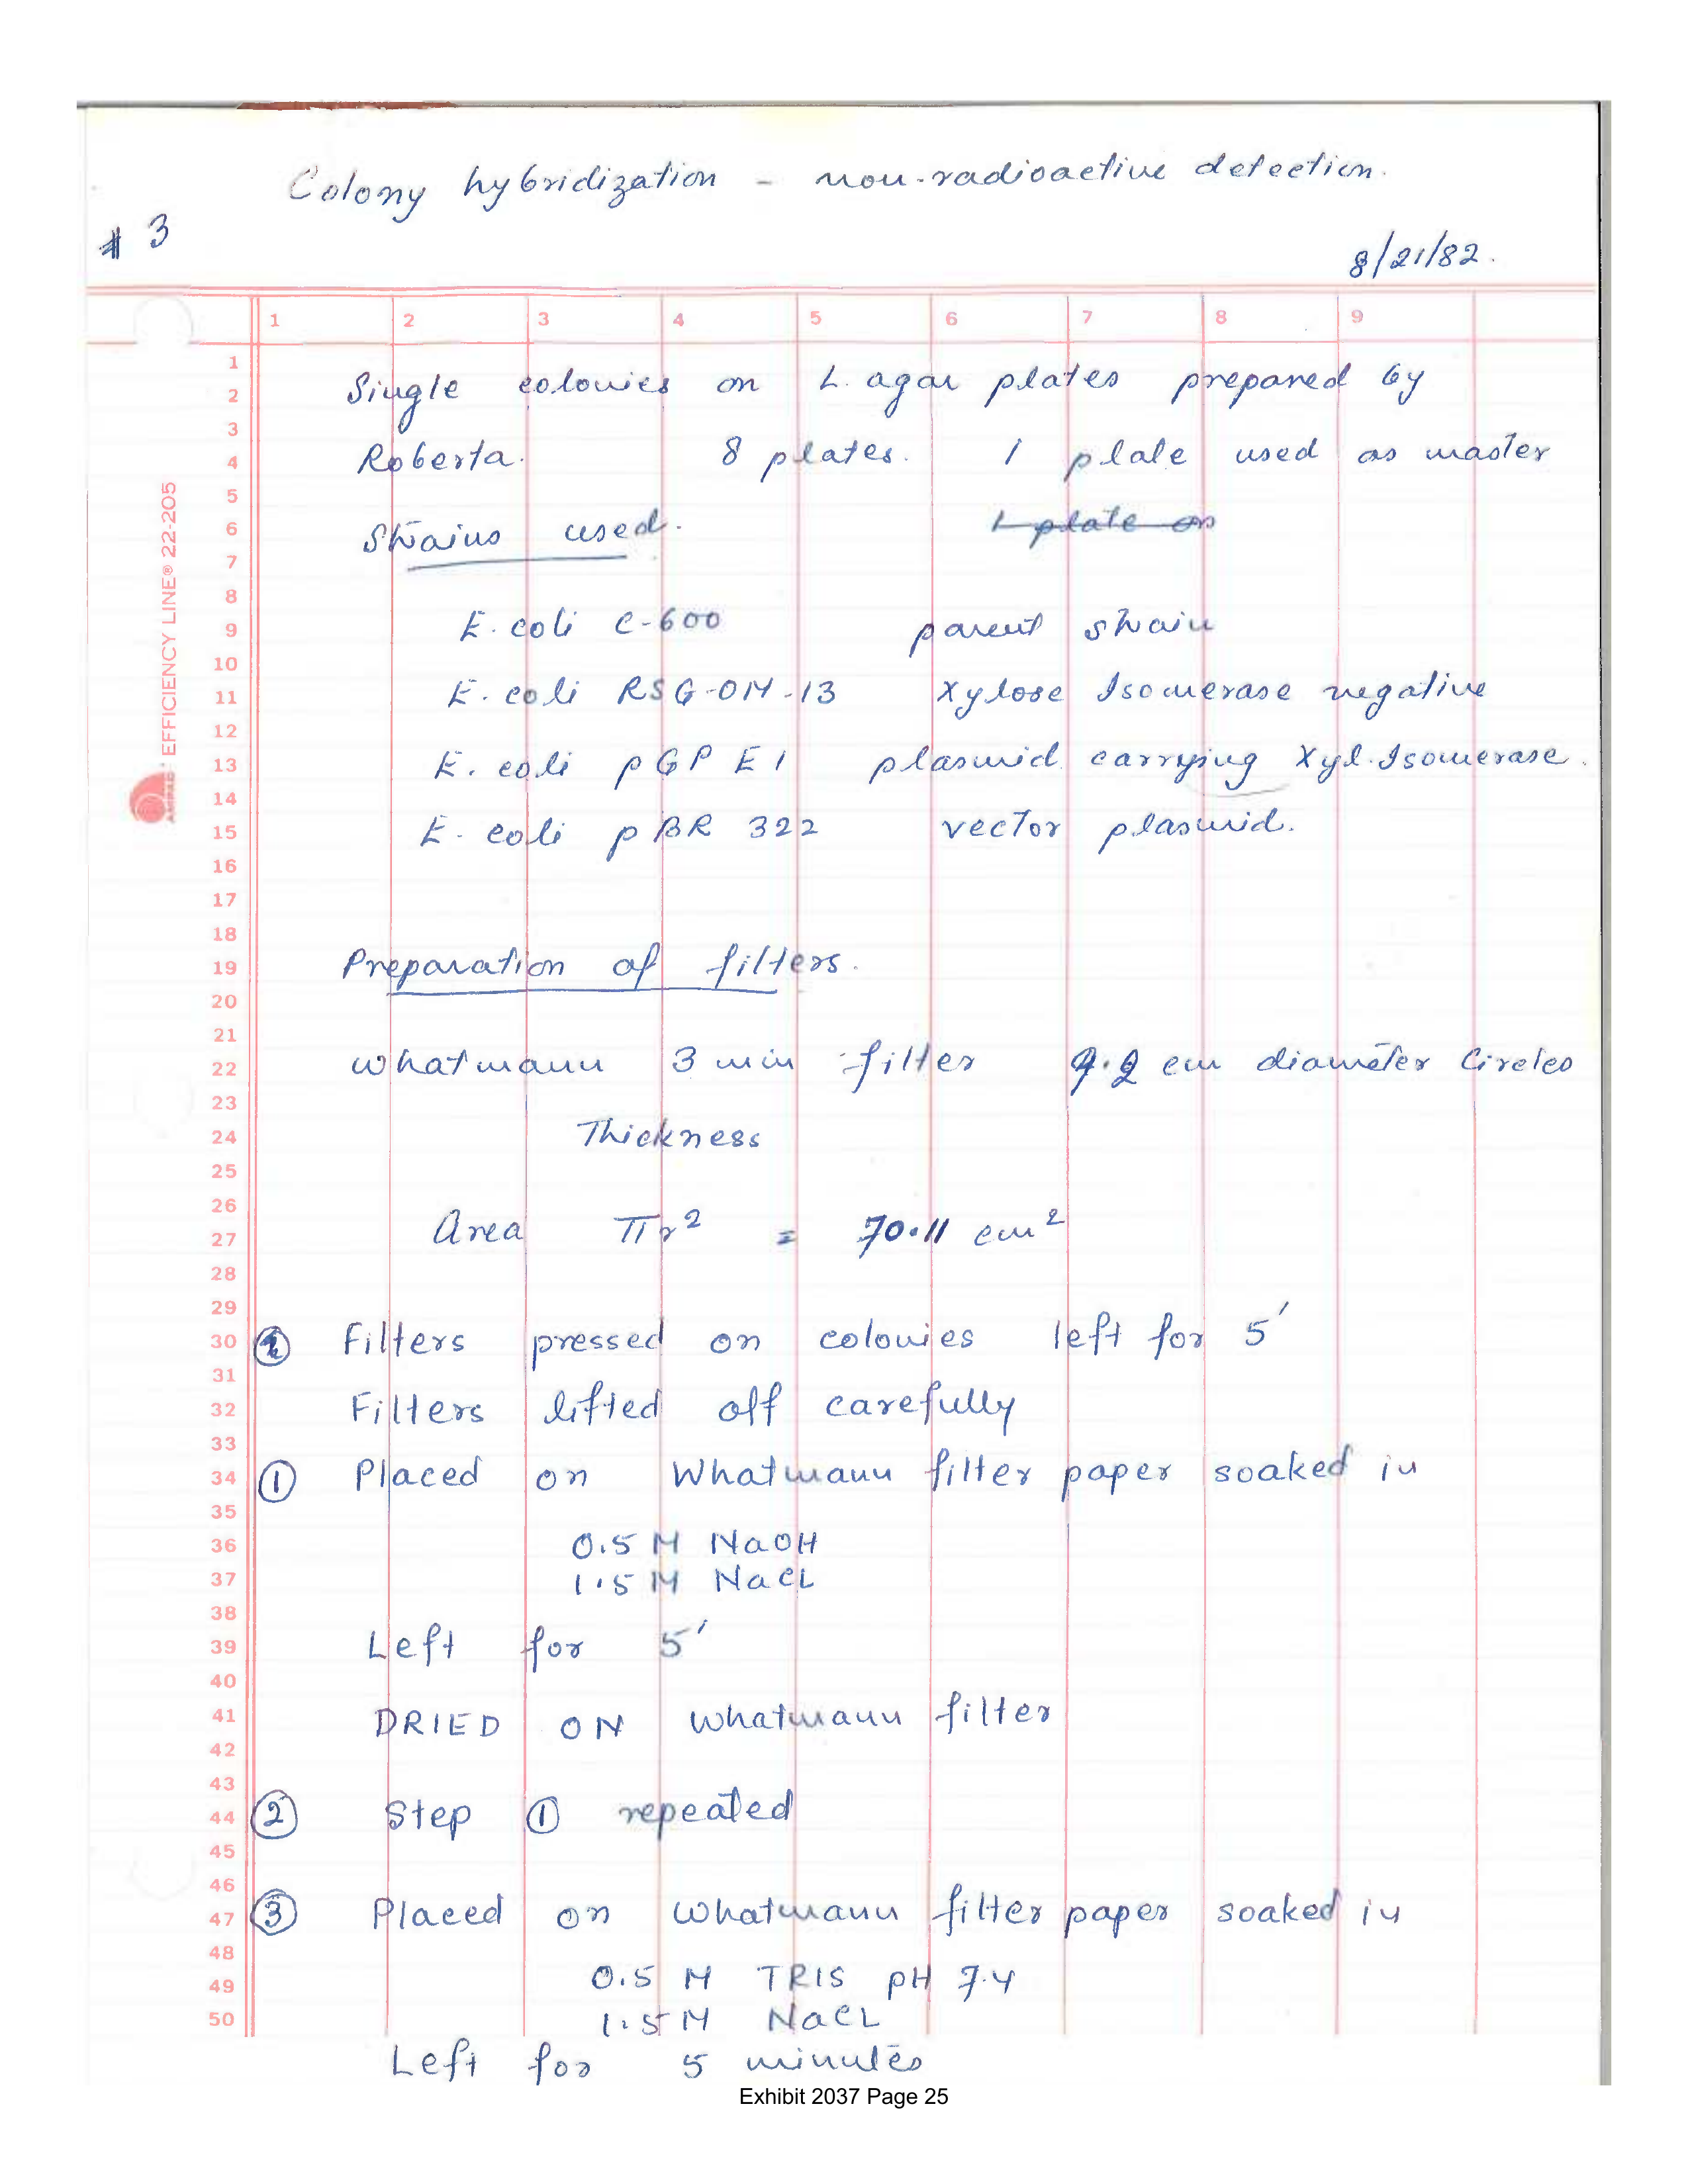 Colony hybridization - non-radioactive detection.
# 3
8/21/82.
1 2 3 4 5 6 7 8 9
Single colonies on L. agar plates prepared by
Roberta. 8 plates. 1 plate used as master
Strains used. 1 plate as
E. coli C-600 parent strain
E. coli RSG-OM-13 Xylose Isomerase negative
E. coli pGP E1 plasmid carrying Xyl. Isomerase.
E. coli pBR 322 vector plasmid.
Preparation of filters.
Whatmann 3 mm filter cm diameter Circles
Thickness
Area πr² = 70.11 cm²
Filters pressed on colonies left for 5'
Filters lifted off carefully
① Placed on Whatmann filter paper soaked in
0.5 M NaOH
1.5 M NaCL
Left for 5'
DRIED ON Whatmann filter
② Step ① repeated
③ Placed on Whatmann filter paper soaked in
0.5 M TRIS pH 7.4
1.5 M NaCL
Left for 5 minutes
1
2
3
4
5
6
7
8
9
10
11
12
13
14
15
16
17
18
19
20
21
22
23
24
25
26
27
28
29
30
31
32
33
34
35
36
37
38
39
40
41
42
43
44
45
46
47
48
49
50
AMPAD EFFICIENCY LINE® 22-205
Exhibit 2037 Page 25